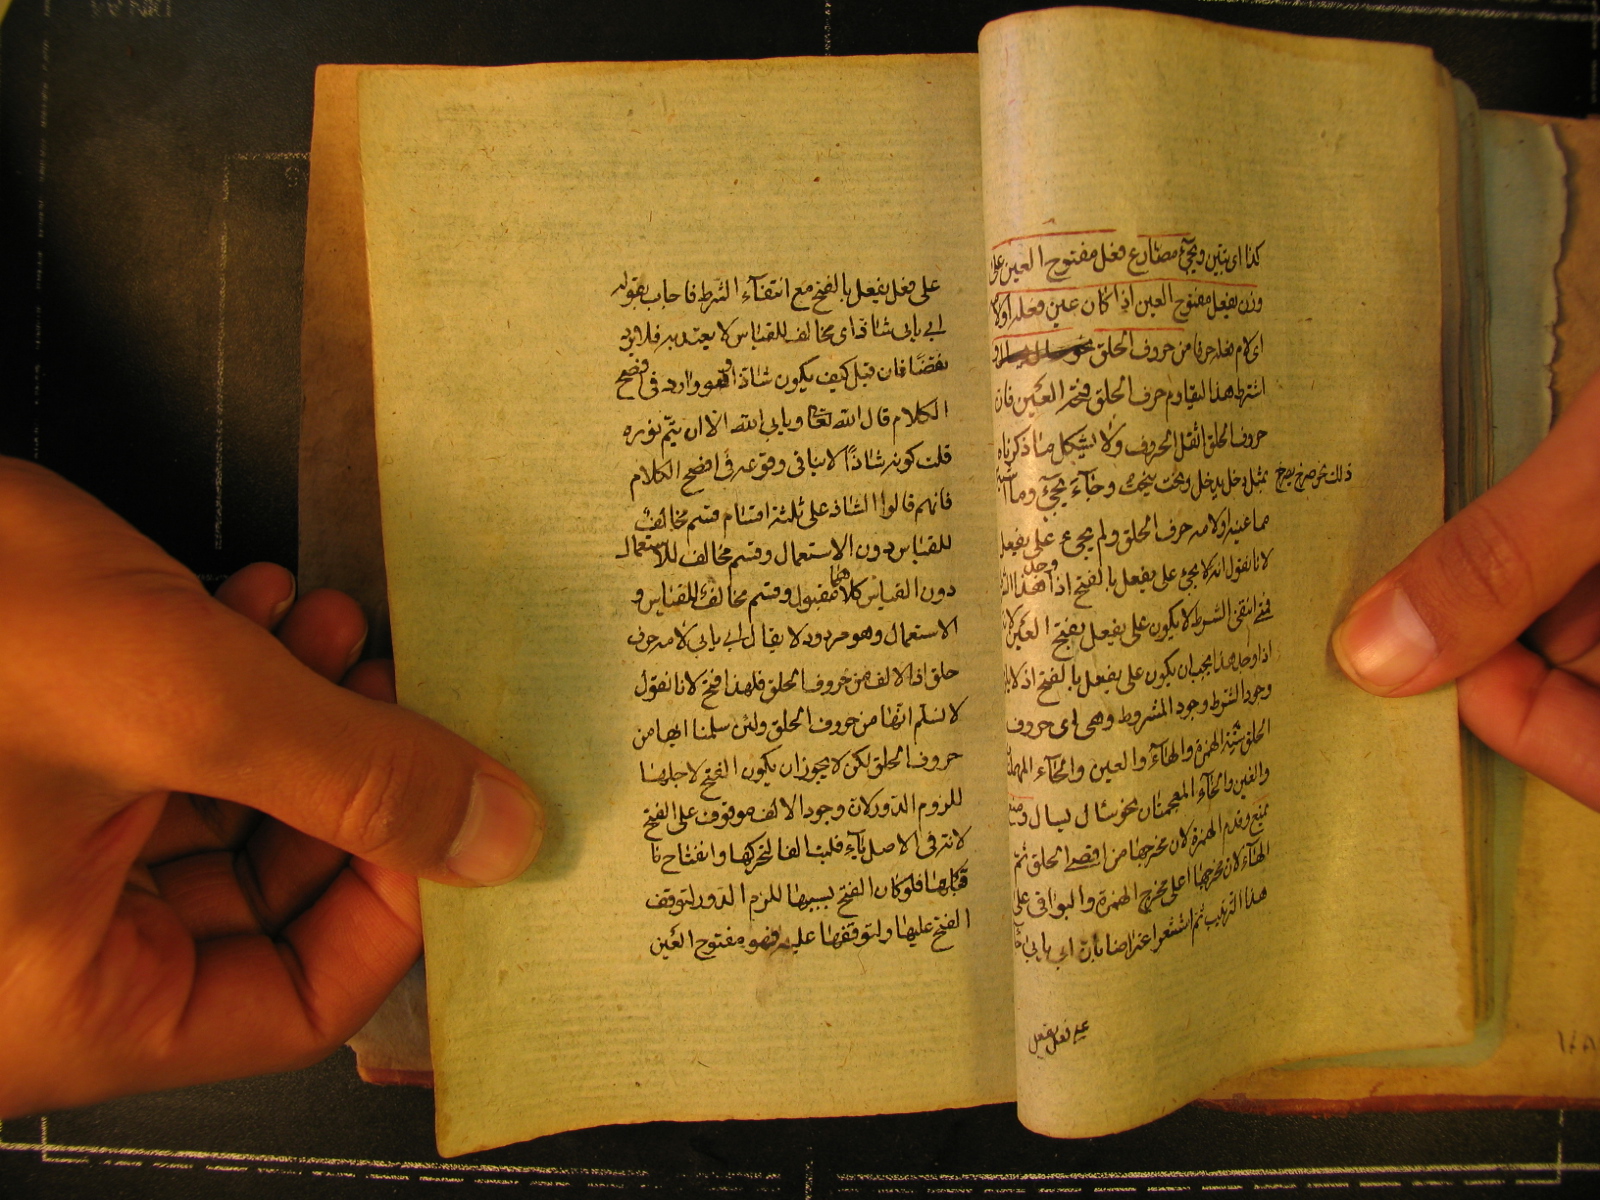 كذا اى بتين ويجئ مضارع فعل مفتوح العين على
وزن يفعل مفتوح العين اذا كان عين فعله اولا
اى لام فعله حرفا من حروف الحلق
اشترط هذا ليقاوم حرف الحلق فتحة العين فان
حروف الحلق اثقل الحروف ولا يشكل ما ذكرناه
بمثل دخل يدخل ونحت ينحت وجاء يجئ وما
ذلك نحو صرخ يصرخ
مما عينه اولامه حرف الحلق ولم يجئ على يفعل
لانا نقول انه لا يجئ على يفعل بالفتح اذا وجد هذا
فمتى انتفى الشرط لا يكون على يفعل بفتح العين
اذا وجد هذا يجب ان يكون على يفعل بالفتح اذ لا
وجود الشرط وجود المشروط وهى اى حروف
الحلق ستة الهمزة والهاء والعين والحاء المهملتان
والغين والخاء المعجمتان نحو سال يسال ومنع
يمنع وقدم الهمزة لان مخرجها من اقصى الحلق ثم
الهاء لان مخرجها اعلى مخرج الهمزة والبواقى على
هذا الترتيب ثم استشعر اعتراضا بان ابى يابى
على فعل يفعل
على فعل يفعل بالفتح مع انتفاء الشرط فاجاب بقوله
ابى يابى شاذ اى مخالف للقياس لا يعتد به فلا يرد
نقضا فان قيل كيف يكون شاذا وهو وارد فى افصح
الكلام قال الله تعالى ويابى الله الا ان يتم نوره
قلت كونه شاذا لا ينافى وقوعه فى افصح الكلام
فانهم قالوا الشاذ على ثلثة اقسام قسم مخالف
للقياس دون الاستعمال وقسم مخالف للاستعمال
دون القياس كلاهما مقبول وقسم مخالف للقياس و
الاستعمال وهو مردود لا يقال ابى يابى لامه حرف
حلق اذ الالف من حروف الحلق فلهذا فتح لانا نقول
لا نسلم انها من حروف الحلق ولئن سلمنا انها من
حروف الحلق لكن لا يجوز ان يكون الفتح لاجلها
للزوم الدور لان وجود الالف موقوف على الفتح
لانه فى الاصل ياء قلبت الفا لتحركها وانفتاح ما
قبلها فلو كان الفتح بسببها للزم الدور لتوقف
الفتح عليها ولتوقفها عليه فهو مفتوح العين